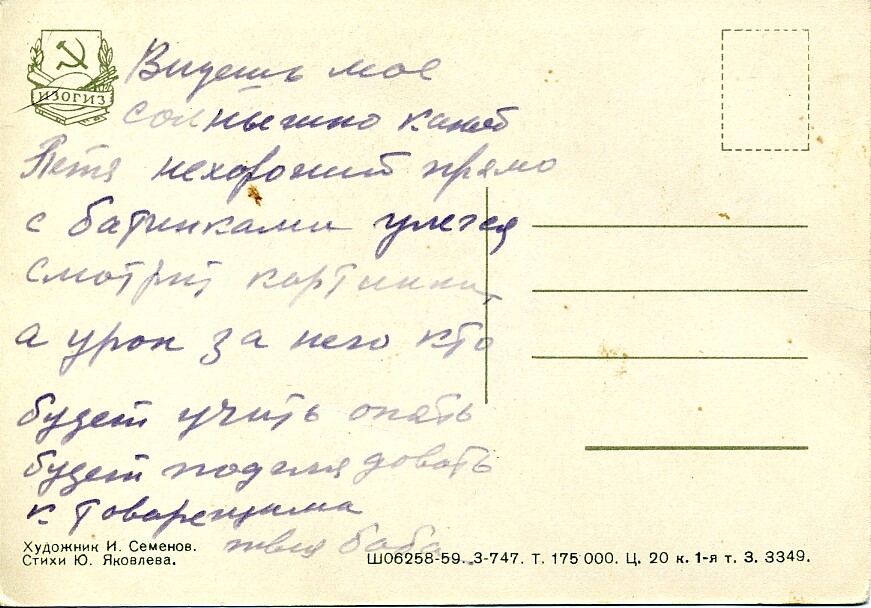 ИЗОГИЗ
Видешь мое
солнышко какой
Петя нехороший прямо
с батинками улегся
смотрит картинки,
а урок за него кто
будет учить опять
будет подглядовать
к товарещима
твоя баба
Художник И. Семенов.
Стихи Ю. Яковлева.
Ш06258-59. 3-747. Т. 175 000. Ц. 20 к. 1-я т. З. 3349.